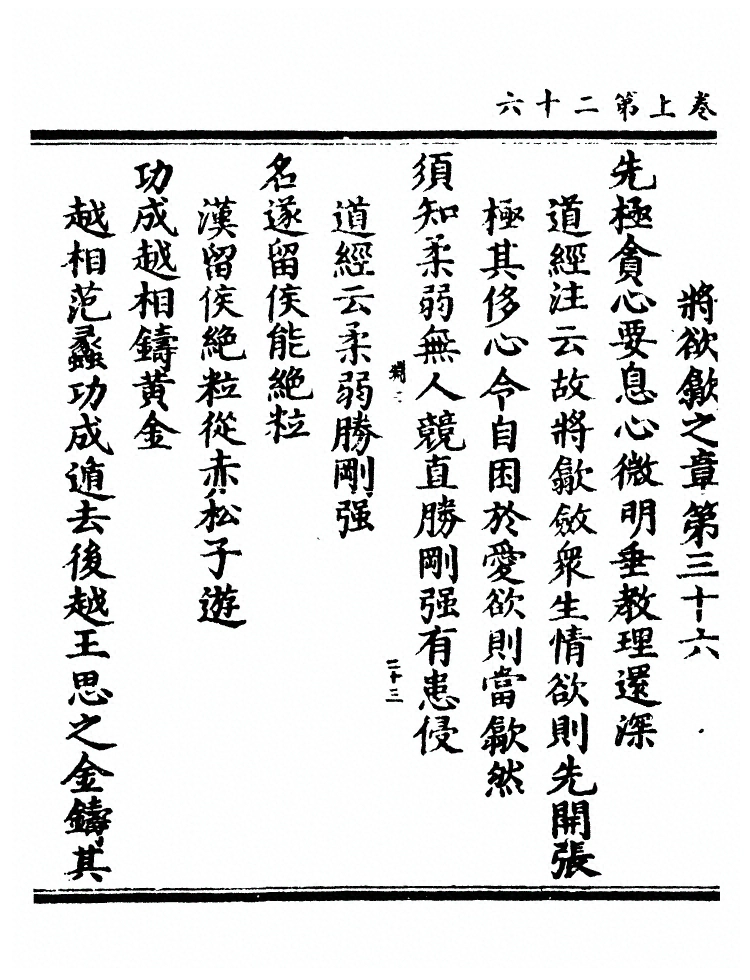 卷上第二十六
將欲歙之章第三十六
先極貪心要息心微明垂教理還深
道經注云故將歙斂衆生情欲則先開張
極其侈心令自困於愛欲則當歙然
須知柔弱無人競直勝剛强有患侵
二十三
道經云柔弱勝剛强
名遂留侯能絶粒
漢留侯絶粒從赤松子遊
功成越相鑄黃金
越相范蠡功成遁去後越王思之金鑄其